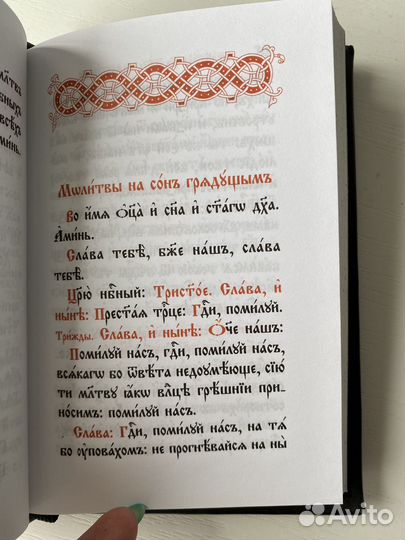 МЛ҃ТВЪ
БНЫХЪ
ВСѢХЪ
АМИ́НЬ.
Мѡли́твы на со́нъ грѧдꙋ́щымъ
Во и҆́мѧ ѻ҆ц҃а̀ и҆ сн҃а и҆ ст҃а́гѡ дх҃а.
А҆ми́нь.
Сла́ва тебѣ̀, бж҃е на́шъ, сла́ва
тебѣ̀.
Цр҃ю̀ нбⷭ҇ный: Трист҃о́е. Сла́ва, и҆
ны́нѣ: Прест҃а́ѧ трⷪ҇це: Гдⷭ҇и, поми́лꙋй.
Три́жды. Сла́ва, и҆ ны́нѣ: Ѻ҆́ч҃е на́шъ:
Поми́лꙋй на́съ, гдⷭ҇и, поми́лꙋй на́съ,
всѧ́кагѡ бо ѿвѣ́та недоꙋмѣ́юще, сїю̀
ти мл҃твꙋ ꙗ҆́кѡ влⷣцѣ грѣ́шнїи при-
но́симъ: поми́лꙋй на́съ.
Сла́ва: Гдⷭ҇и, поми́лꙋй на́съ, на тѧ̀
бо ᲂу҆пова́хомъ: не прогнѣ́вайсѧ на ны̀
Avito